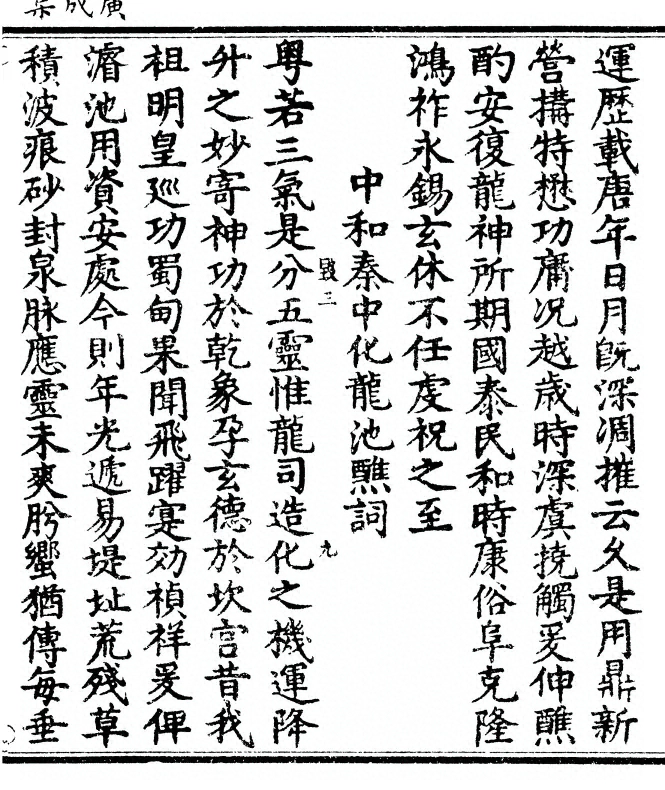 廣成集
運歷載唐年日月旣深凋摧云久是用鼎新
營搆特懋功庸况越歲時深虞撓觸爰伸醮
酌安復龍神所期國泰民和時康俗阜克隆
鴻祚永錫玄休不任虔祝之至
中和秦中化龍池醮詞
粤若三氣是分五靈惟龍司造化之機運降
升之妙寄神功於乾象孕玄德於坎宫昔我
祖明皇巡功蜀甸果聞飛躍寔効禎祥爰俾
濬池用資安處今則年光遞易堤址荒殘草
積波痕砂封泉脉應靈未爽肹蠁猶傳每垂
三
九